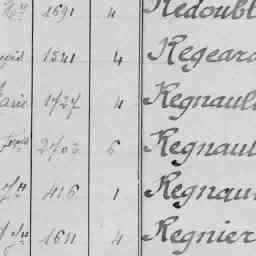 1691 4 Redoubl
1541 4 Regeard
Marie 1727 4 Regnaul
2702 6 Regnaul
Jh 416 1 Regnau
1611 4 Regnier